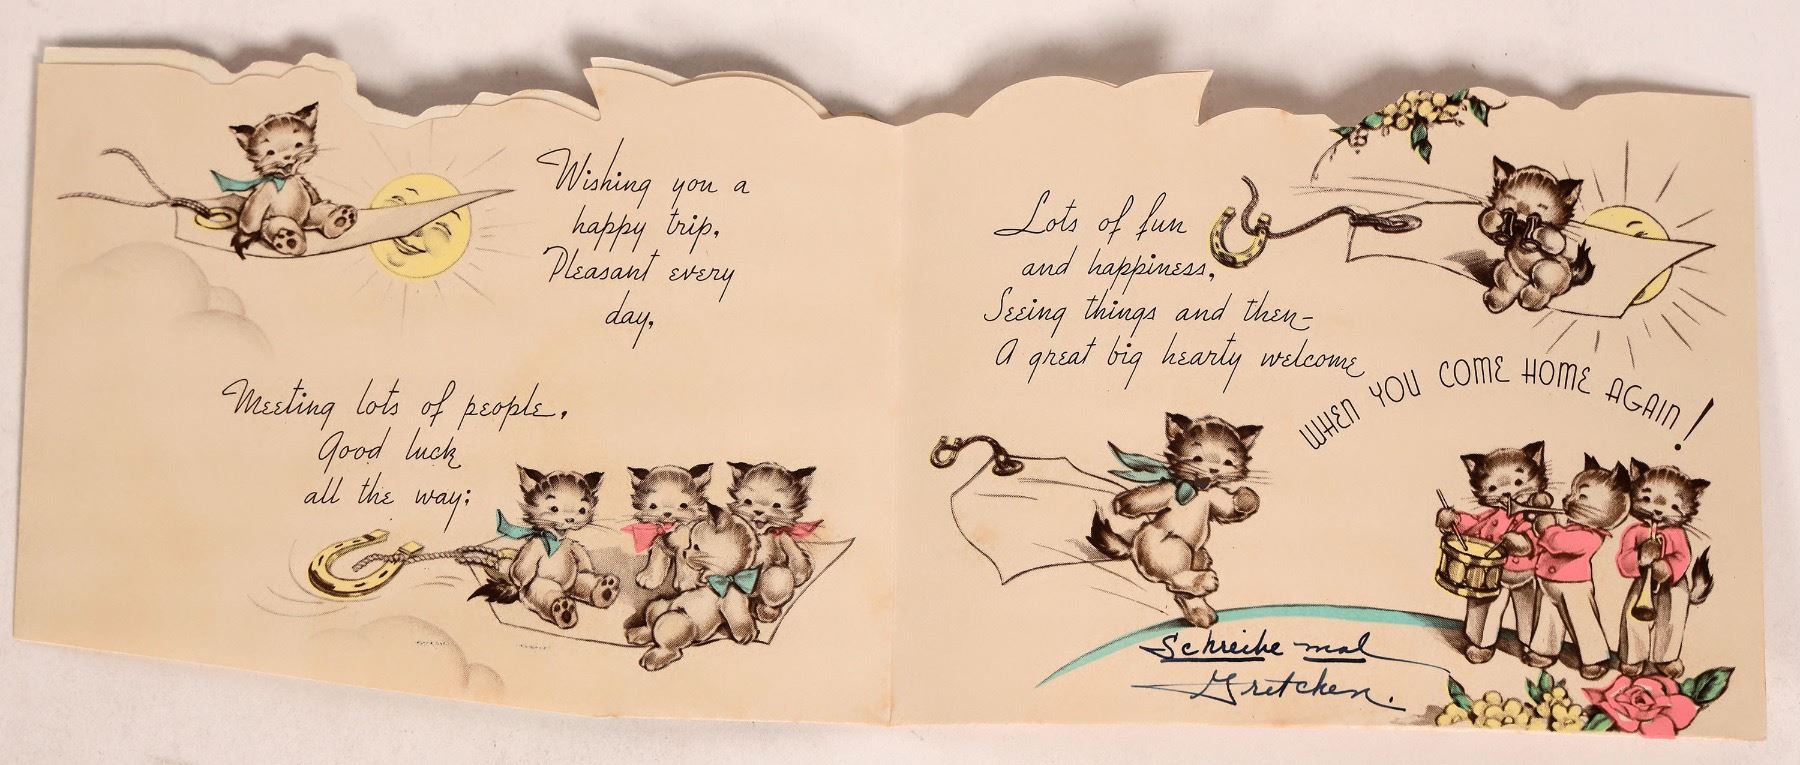 Wishing you a
happy trip,
Pleasant every
day,
Meeting lots of people,
Good luck
all the way;
Lots of fun
and happiness,
Seeing things and then—
A great big hearty welcome
WHEN YOU COME HOME AGAIN!
Schreibe mal
Gretchen.